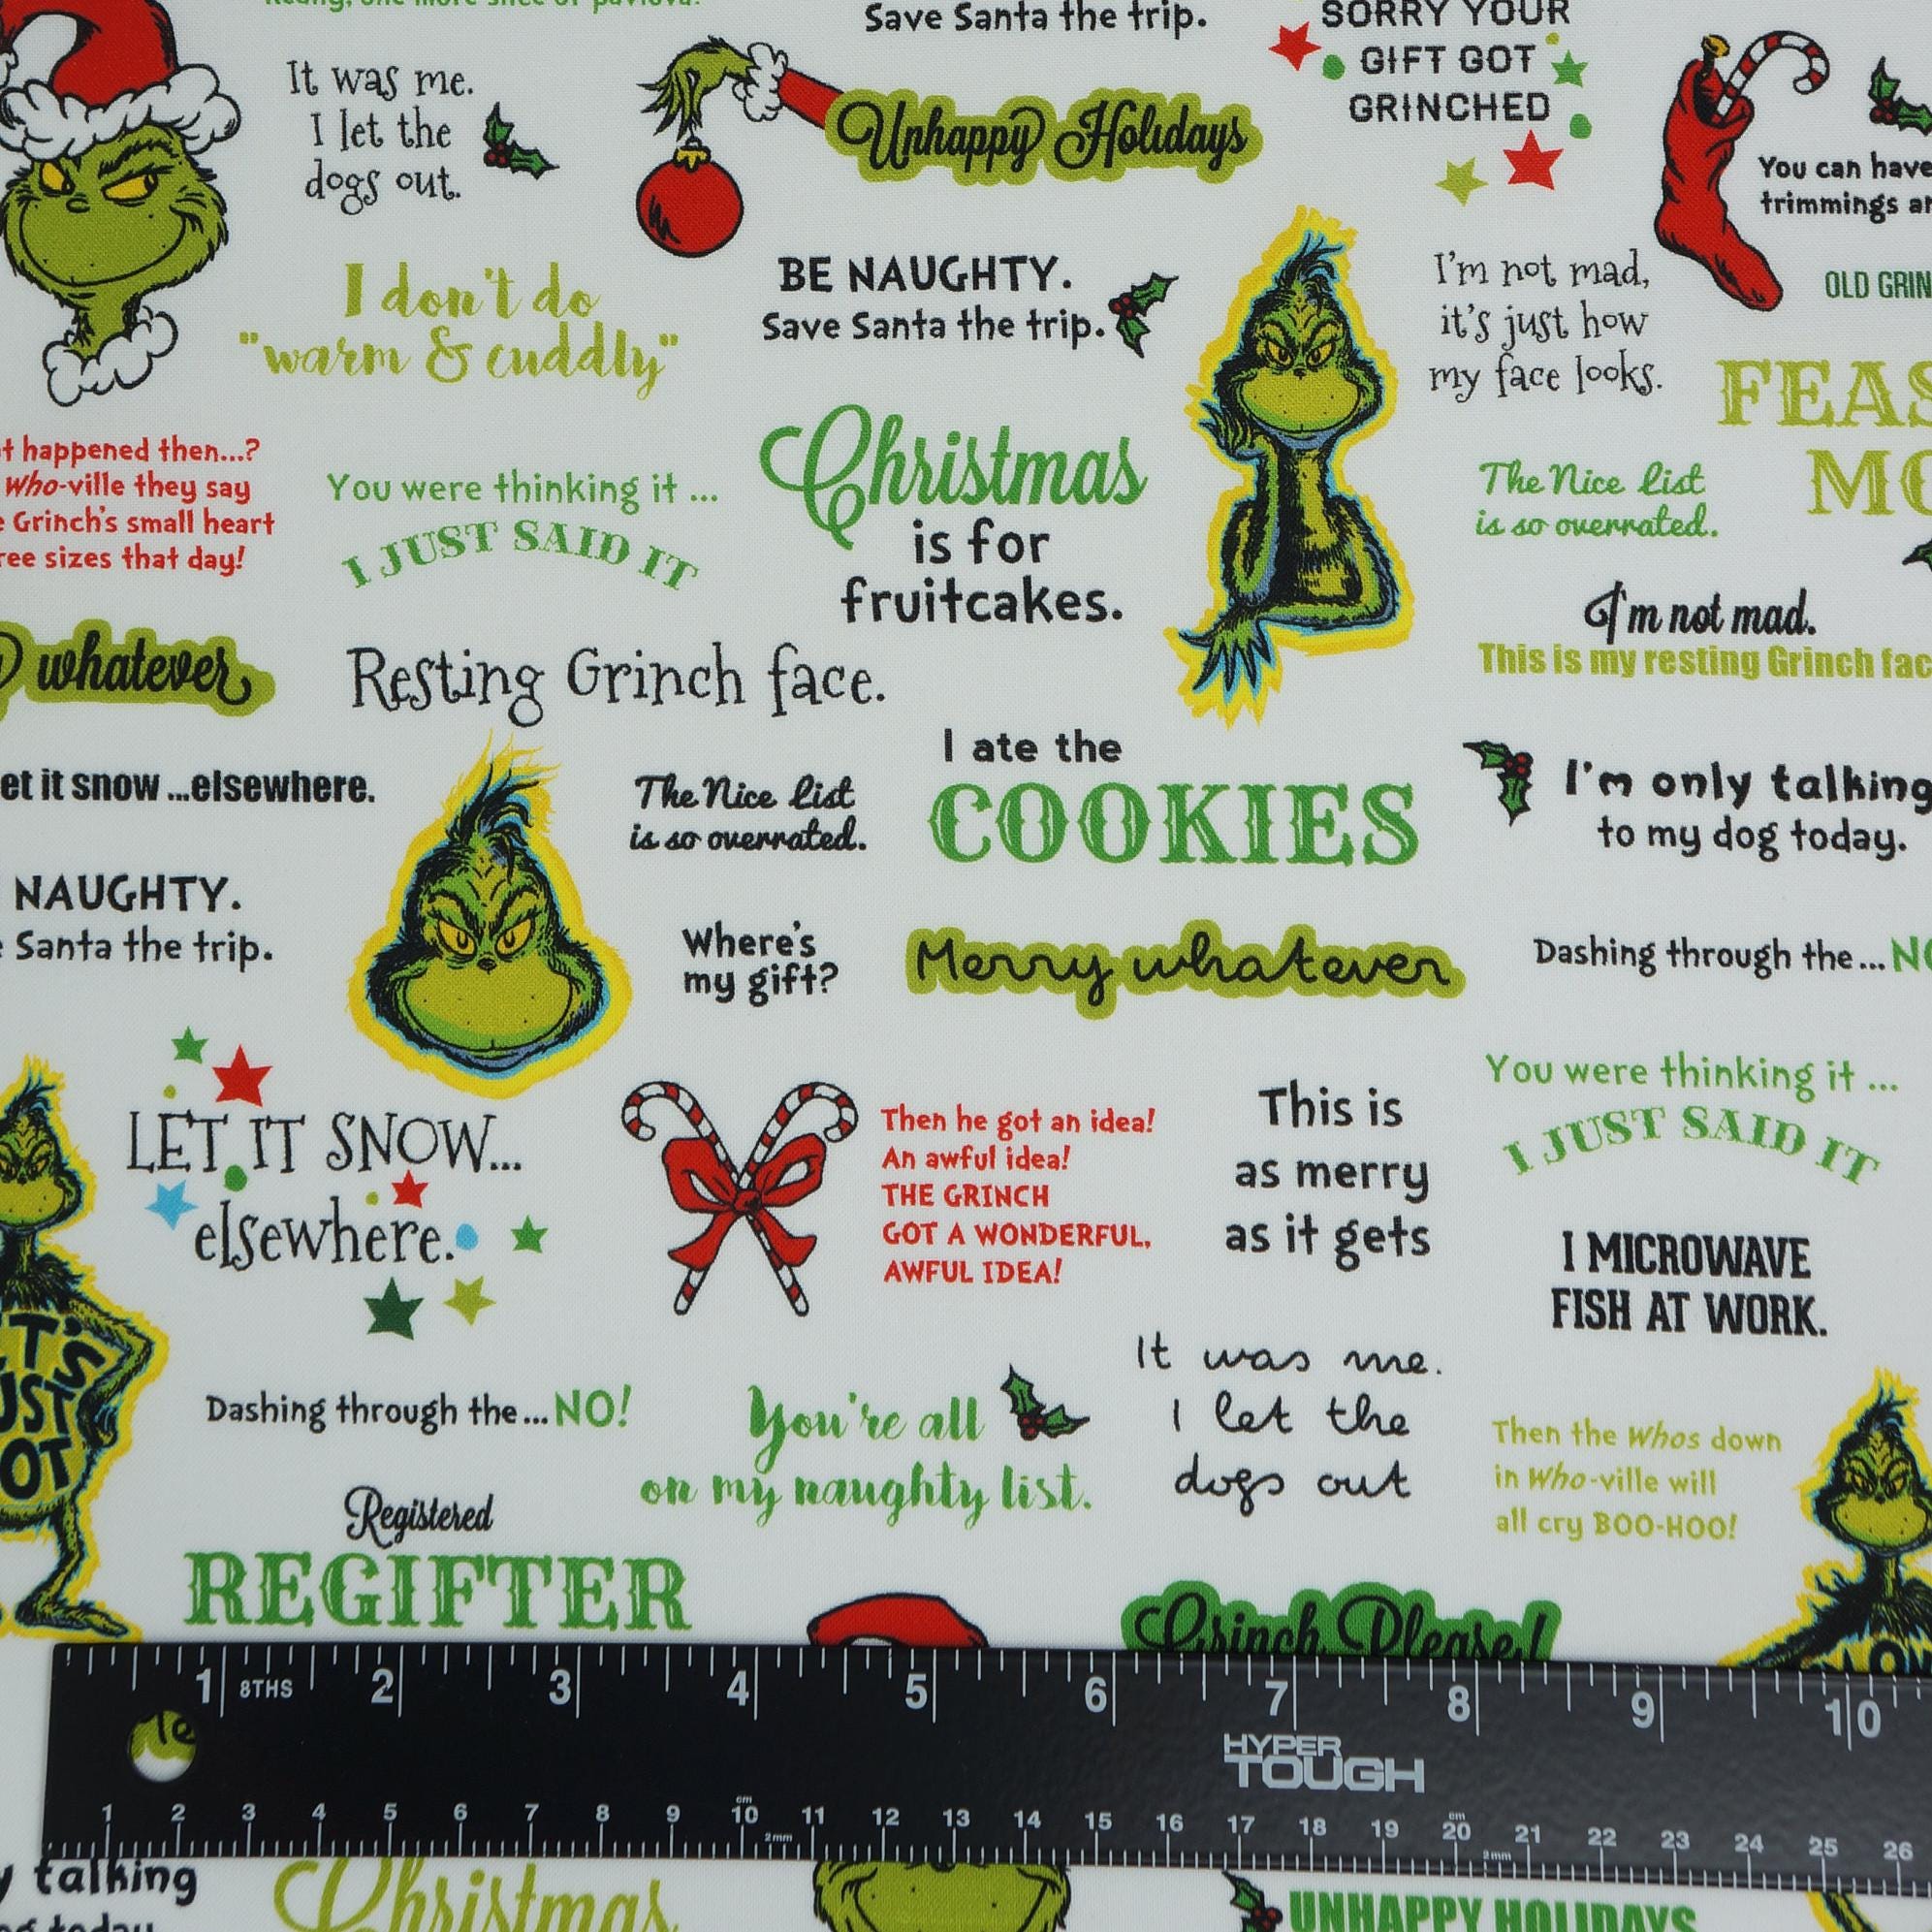 one more slice of pavlova.
Save Santa the trip.
SORRY YOUR
GIFT GOT
GRINCHED
It was me.
I let the
dogs out.
Unhappy Holidays
You can have
trimmings
I don't do
"warm & cuddly"
BE NAUGHTY.
Save Santa the trip.
I'm not mad,
it's just how
my face looks.
OLD
Christmas
is for
fruitcakes.
happened then...?
Who-ville they say
Grinch's small heart
sizes that day!
You were thinking it ...
I JUST SAID IT
The Nice List
is so overrated.
whatever
Resting Grinch face.
I'm not mad.
This is my resting Grinch
it snow ...elsewhere.
The Nice List
is so overrated.
I ate the
COOKIES
I'm only talking
to my dog today.
NAUGHTY.
Santa the trip.
Where's
my gift?
Merry whatever
Dashing through the...
LET IT SNOW...
elsewhere.
Then he got an idea!
An awful idea!
THE GRINCH
GOT A WONDERFUL,
AWFUL IDEA!
This is
as merry
as it gets
You were thinking it ...
I JUST SAID IT
I MICROWAVE
FISH AT WORK.
Dashing through the... NO!
You're all
on my naughty list.
It was me.
I let the
dogs out
Then the Whos down
in Who-ville will
all cry BOO-HOO!
Registered
REGIFTER
Grinch Please!
1 8THS 2 3 4 5 6 7 8 9 10
HYPER
TOUGH
cm cm
1 2 3 4 5 6 7 8 9 10 11 12 13 14 15 16 17 18 19 20 21 22 23 24 25 26
2mm 2mm
talking
Christmas
UNHAPPY HOLIDAYS